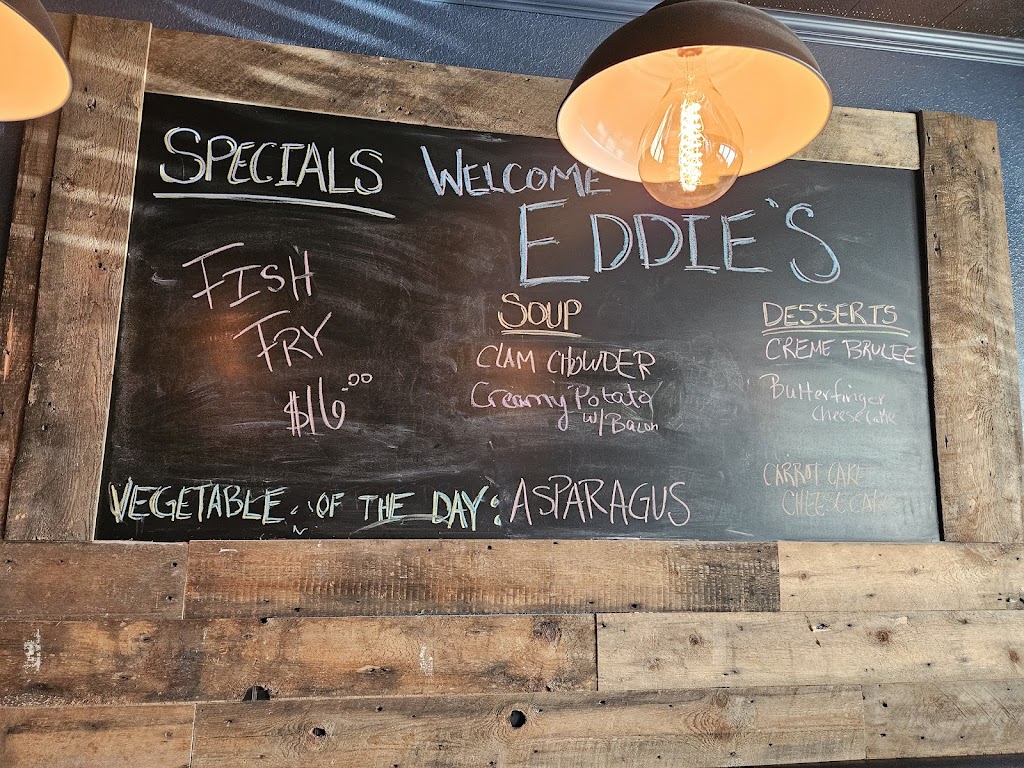 SPECIALS
WELCOME
EDDIE'S
FISH
FRY
$16.00
SOUP
CLAM CHOWDER
Creamy Potato
w/ Bacon
DESSERTS
CREME BRULEE
Butterfinger
cheesecake
CARROT CAKE
CHEESECAKE
VEGETABLE OF THE DAY: ASPARAGUS